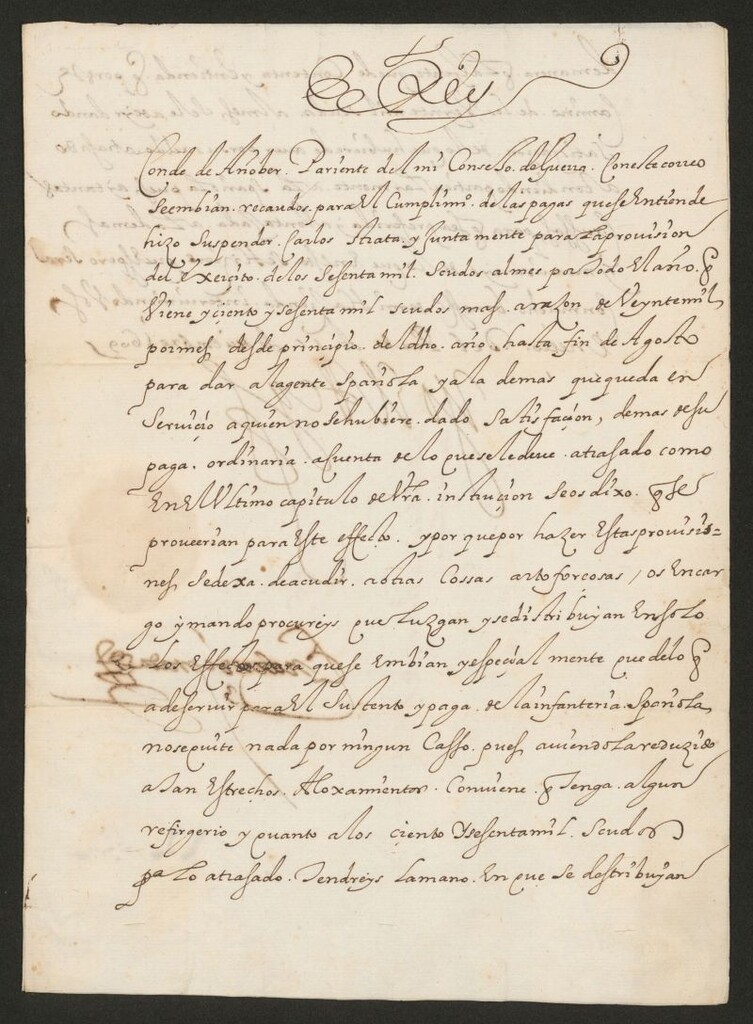 El Rey
Conde de Añober. Pariente del mi Consejo. de Guerra. Con este correo
Se embian. recaudos. para El Cumplimº. de las pagas que se Entiende
hizo Suspender. Carlos Strata. y Junta mente para La provision
del Exerçito. de los Sesenta mil. Scudos al mes. por todo El año. q
Viene y ciento y sesenta mil scudos mas. a razon de Veynte mil
por mes desde principio. del dho. año. hasta fin de Agosto
para dar a la gente Española y a la demas que queda en
Servicio a quien no se hubiere. dado Satisfaçion, demas de su
paga. ordinaria. a quenta de lo que se le deve. atrasado como
En El Ultimo capitulo de Vra. instruçion Se os dixo. q se
proveerian para Este effecto. y por que por hazer Estas provisio=
nes se dexa. de acudir. a otras Cossas arto forçosas / os Encar
go y mando procureys que Luzgan y se distribuyan En solo
Los Effectos para que se Embian y espeçial mente que de lo q
a de servir para El Sustento y paga. de la infanteria. Española,
no se quite nada por ningun Casso. pues aviendo La reduzido
a tan Estrechos. Aloxamientos. Conviene. q tenga. algun
refirgerio y quanto a los ciento Y sesenta mil. Scudos
pª Lo atrasado. Tendreys La mano. En que se destribuyan